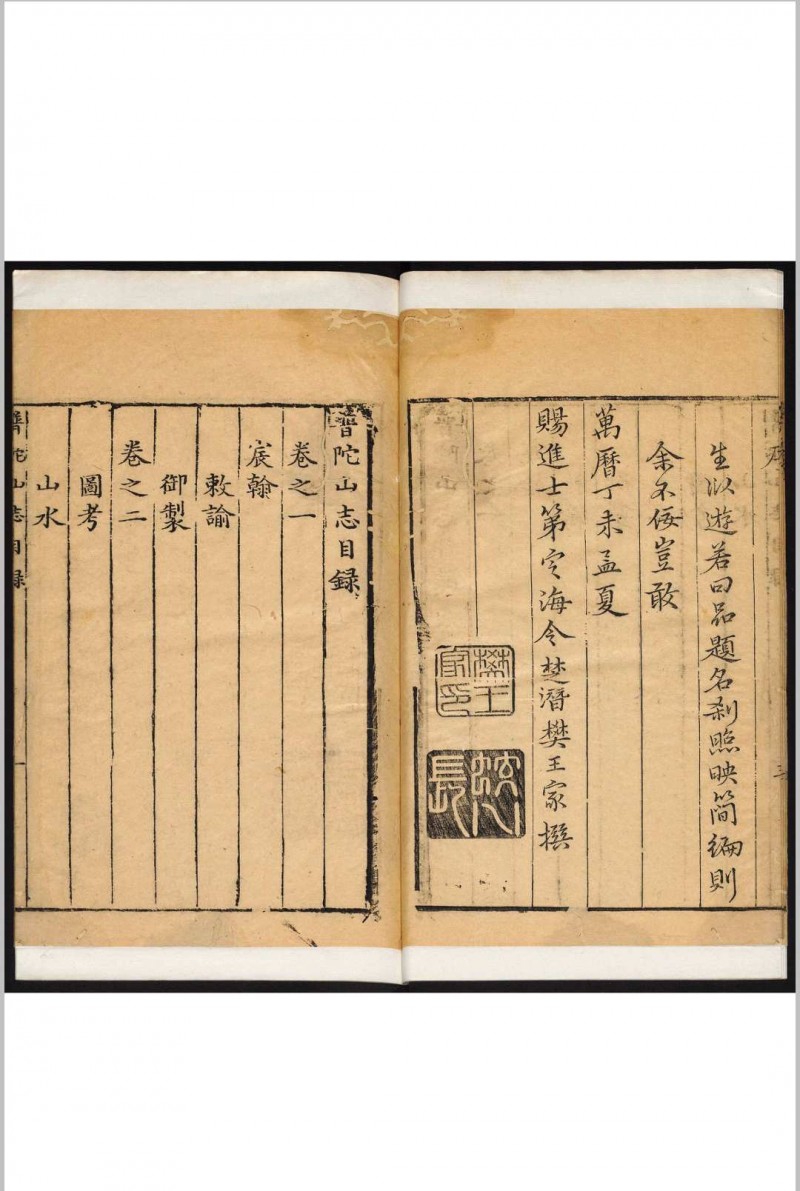 生以遊若曰品題名剎照映簡編則
余不佞豈敢
萬曆丁未孟夏
賜進士第定海令楚潛樊王家撰
樊王家印
普陀山志目録
卷之一
宸翰
敕諭
御製
卷之二
圖考
山水
普陀山志目録